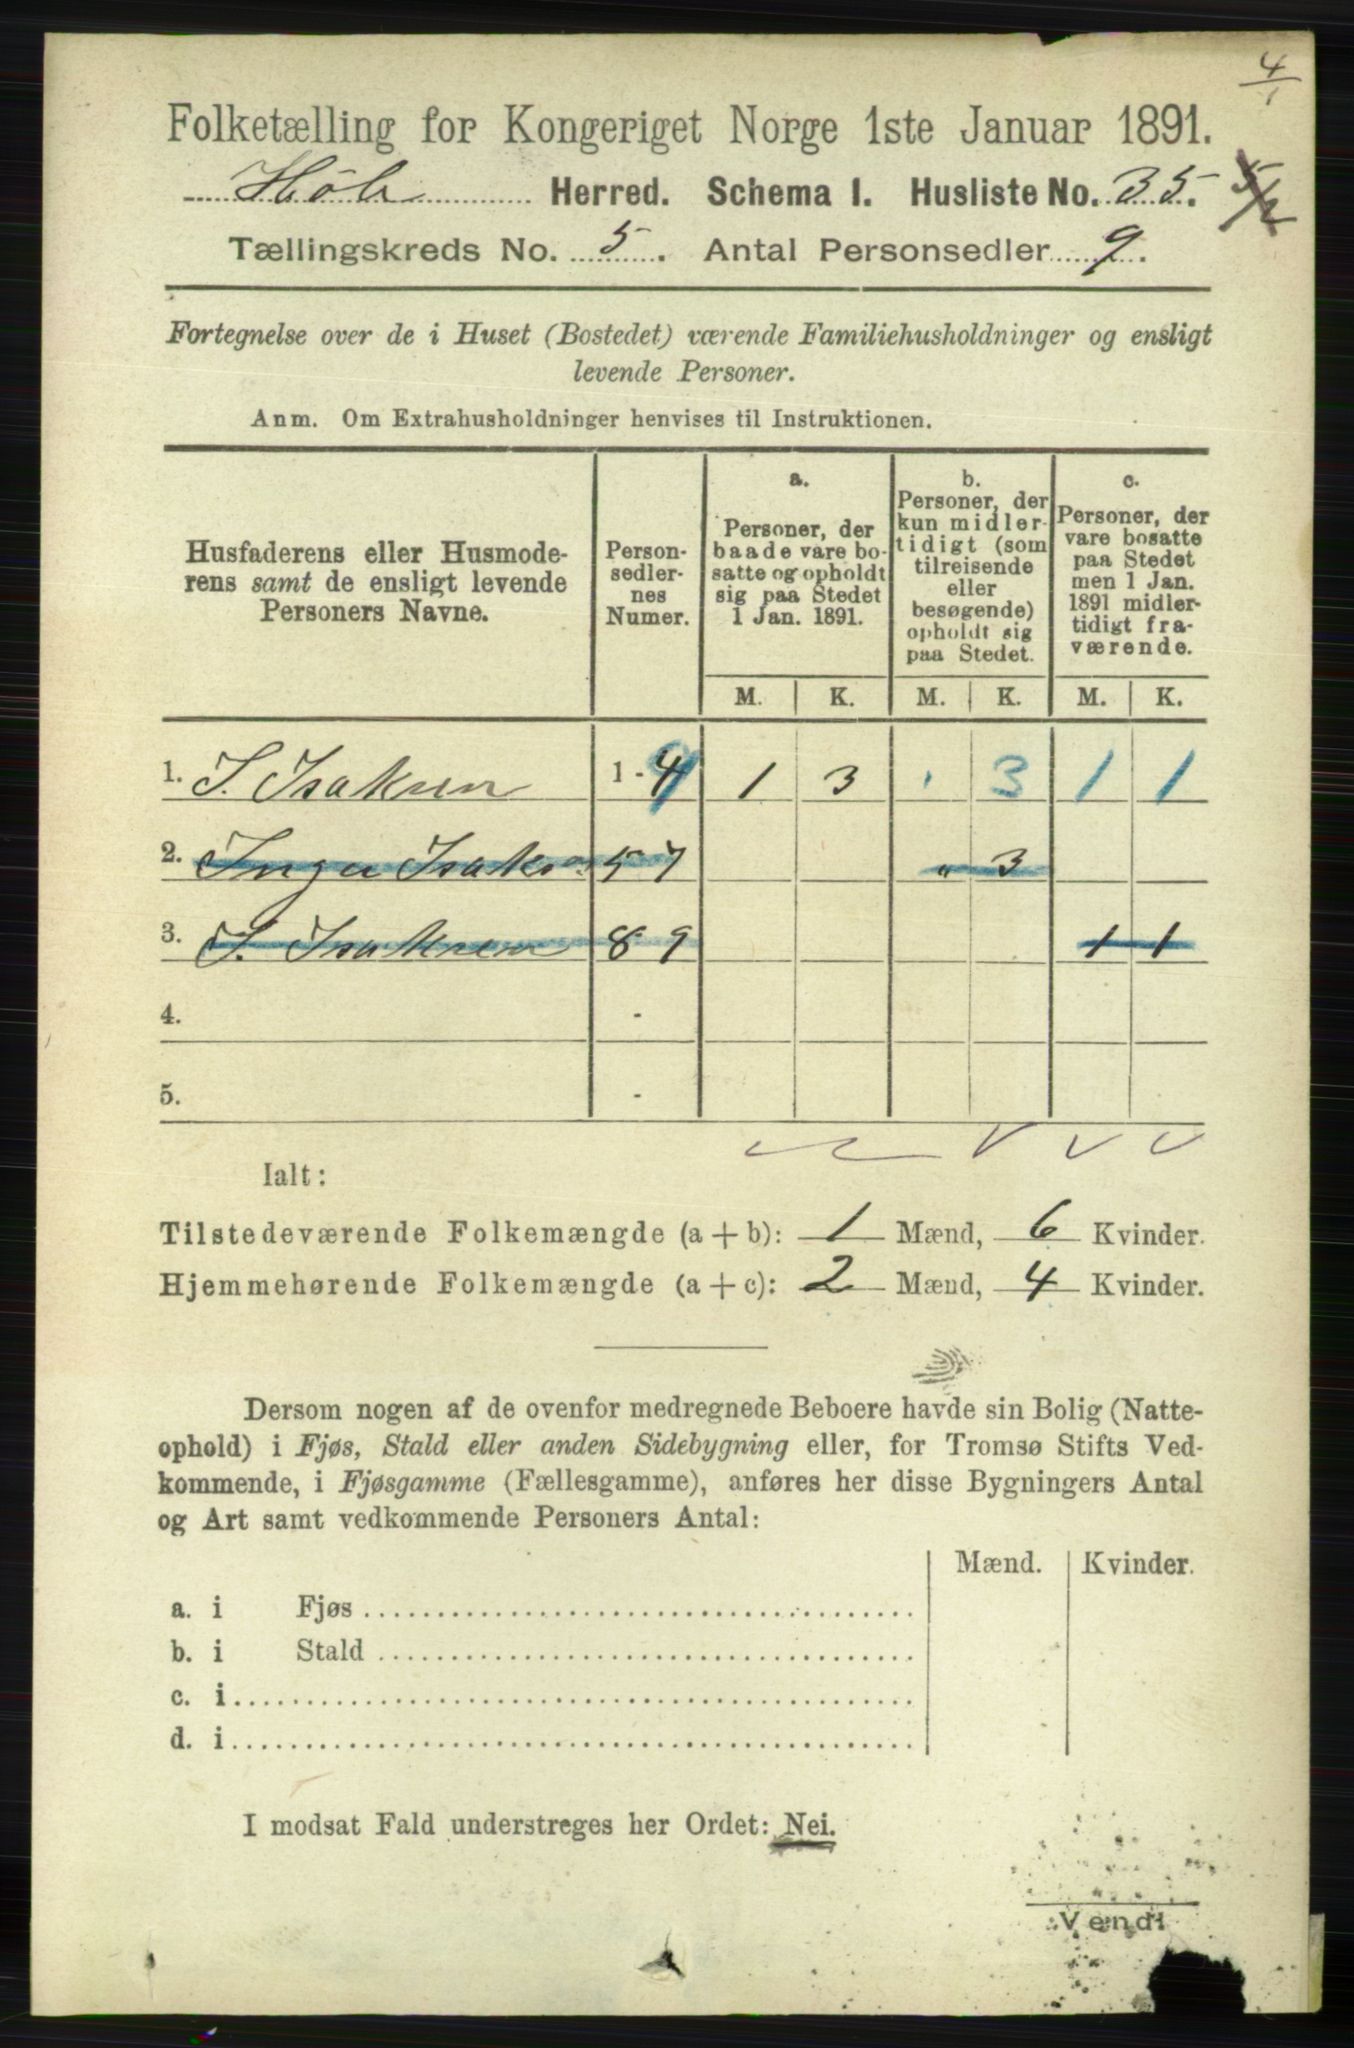 4/1
Folketælling for Kongeriget Norge 1ste Januar 1891.
Herred. Schema I. Husliste No. 35.
5/2
Tællingskreds No. 5. Antal Personsedler 9.
Fortegnelse over de i Huset (Bostedet) værende Familiehusholdninger og ensligt
levende Personer.
Anm. Om Extrahusholdninger henvises til Instruktionen.
Husfaderens eller Husmode-
rens samt de ensligt levende
Personers Navne.
Person-
sedler-
nes
Numer.
a.
Personer, der
baade vare bo-
satte og opholdt
sig paa Stedet
1 Jan. 1891.
b.
Personer, der
kun midler-
tidigt (som
tilreisende
eller
besøgende)
opholdt sig
paa Stedet.
c.
Personer, der
vare bosatte
paa Stedet
men 1 Jan.
1891 midler-
tidigt fra-
værende.
M. K. M. K. M. K.
1. I. Isaksen 1 - 9 1 3 3 1 1
2. Inger Isaks 5 7 " 3
3. I. Isaksen 8 9 1 1
4. -
5. -
Ialt:
Tilstedeværende Folkemængde (a + b): 1 Mænd, 6 Kvinder.
Hjemmehørende Folkemængde (a + c): 2 Mænd, 4 Kvinder.
Dersom nogen af de ovenfor medregnede Beboere havde sin Bolig (Natte-
ophold) i Fjøs, Stald eller anden Sidebygning eller, for Tromsø Stifts Ved-
kommende, i Fjøsgamme (Fællesgamme), anføres her disse Bygningers Antal
og Art samt vedkommende Personers Antal:
Mænd. Kvinder.
a. i Fjøs
b. i Stald
c. i
d. i
I modsat Fald understreges her Ordet: Nei.
Vend!